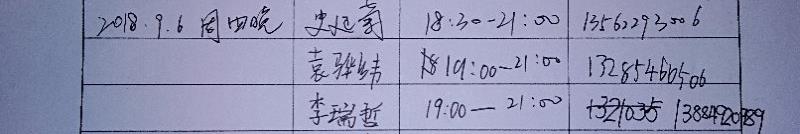 2018.9.6 周四晚 史延雷 18:30-21:00 13562293006
袁骅纬 19:00-21:00 13285460506
李瑞哲 19:00—21:00 13884920989